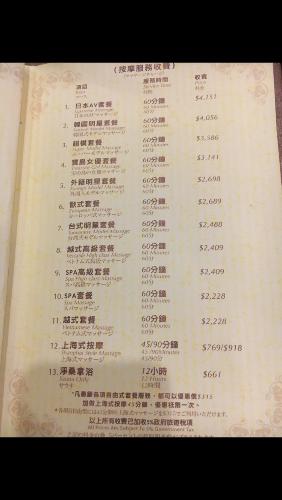 (按摩服務收費)
(マッサージチャージ)
項目 服務時間 收費
Item Service Time Price
時間
1. 日本AV套餐 60分鐘 $4,151
60 Minutes
60分
2. 韓國明星套餐 60分鐘 $4,056
60 Minutes
60分
3. 超模套餐 60分鐘 $3,586
Super Model Massage 60 Minutes
60分
4. 寶島女優套餐 60分鐘 $3,141
60 Minutes
60分
5. 外籍明星套餐 60分鐘 $2,698
60 Minutes
60分
6. 歐式套餐 60分鐘 $2,689
European Massage 60 Minutes
ヨーロッパ式マッサージ 60分
7. 台式明星套餐 60分鐘 $2,488
60 Minutes
60分
8. 越式高級套餐 60分鐘 $2,409
60 Minutes
ベトナム式高級マッサージ 60分
9. SPA高級套餐 60分鐘 $2,409
Spa High-class Massage 60 Minutes
スパ高級マッサージ 60分
10. SPA套餐 60分鐘 $2,228
Spa Massage 60 Minutes
スパマッサージ 60分
11. 越式套餐 60分鐘 $2,228
Vietnamese Massage 60 Minutes
ベトナム式マッサージ 60分
12. 上海式按摩 45/90分鐘 $769/$918
Shanghai Style Massage 45/90Minutes
上海式マッサージ 45/90分
13. 淨桑拿浴 12小時 $661
Sauna Only 12 Hours
サウナ 12時間
*凡惠顧各項自由式套餐服務，都可以優惠價$315
加做上海式按摩45分鐘，優惠祇限一次。
以上所有收費已加收5%政府旅遊稅項
All Prices Are Subject To 5% Government Tax